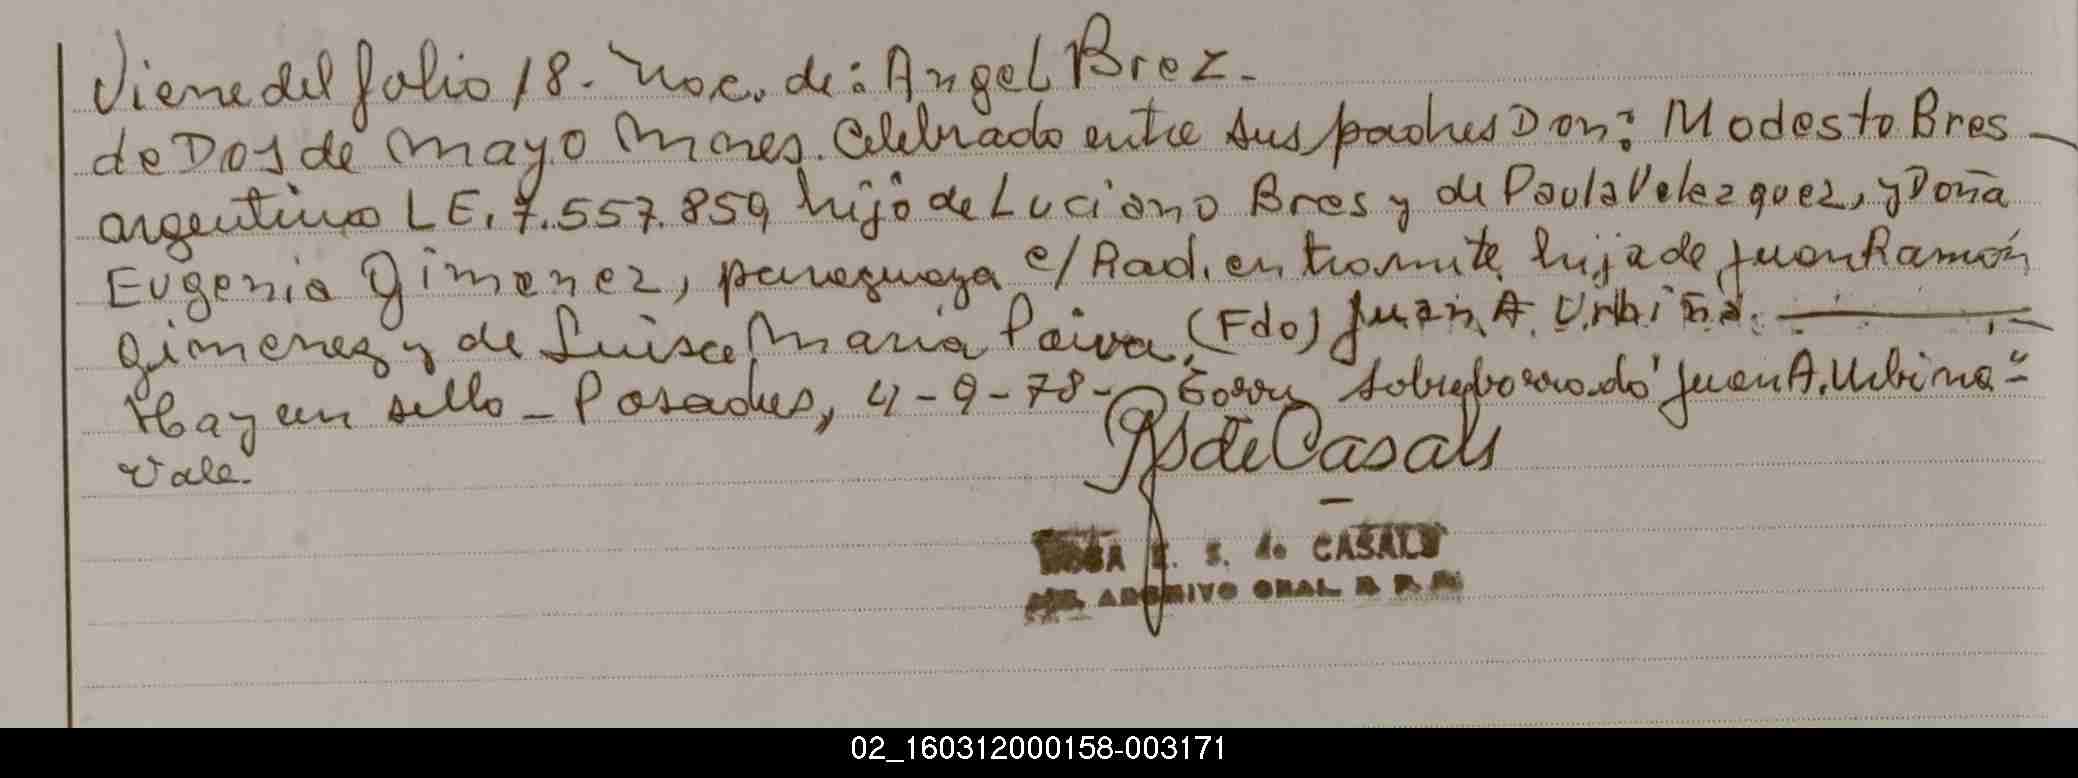 Viene del folio 18- Noc. de: Angel Brez-
de Dos de Mayo Mnes. Celebrado entre sus padres Don: Modesto Bres
argentino L E. 7.557.859, hijo de Luciano Bres y de Paula Velezquez, y Doña
Eugenia Gimenez, paraguaya c/ Rad. en tramite, hija de Juan Ramón
Gimenez y de Luisa Maria Paiva, (Fdo) Juan A. Urbina.
Hay un sello - Posadas, 4-9-78- Sobreborrado "Juan A. Urbina"-
Vale.
RS de Casals
ROSA E. S. de CASALS
ARCHIVO GRAL. R P P
02_160312000158-003171